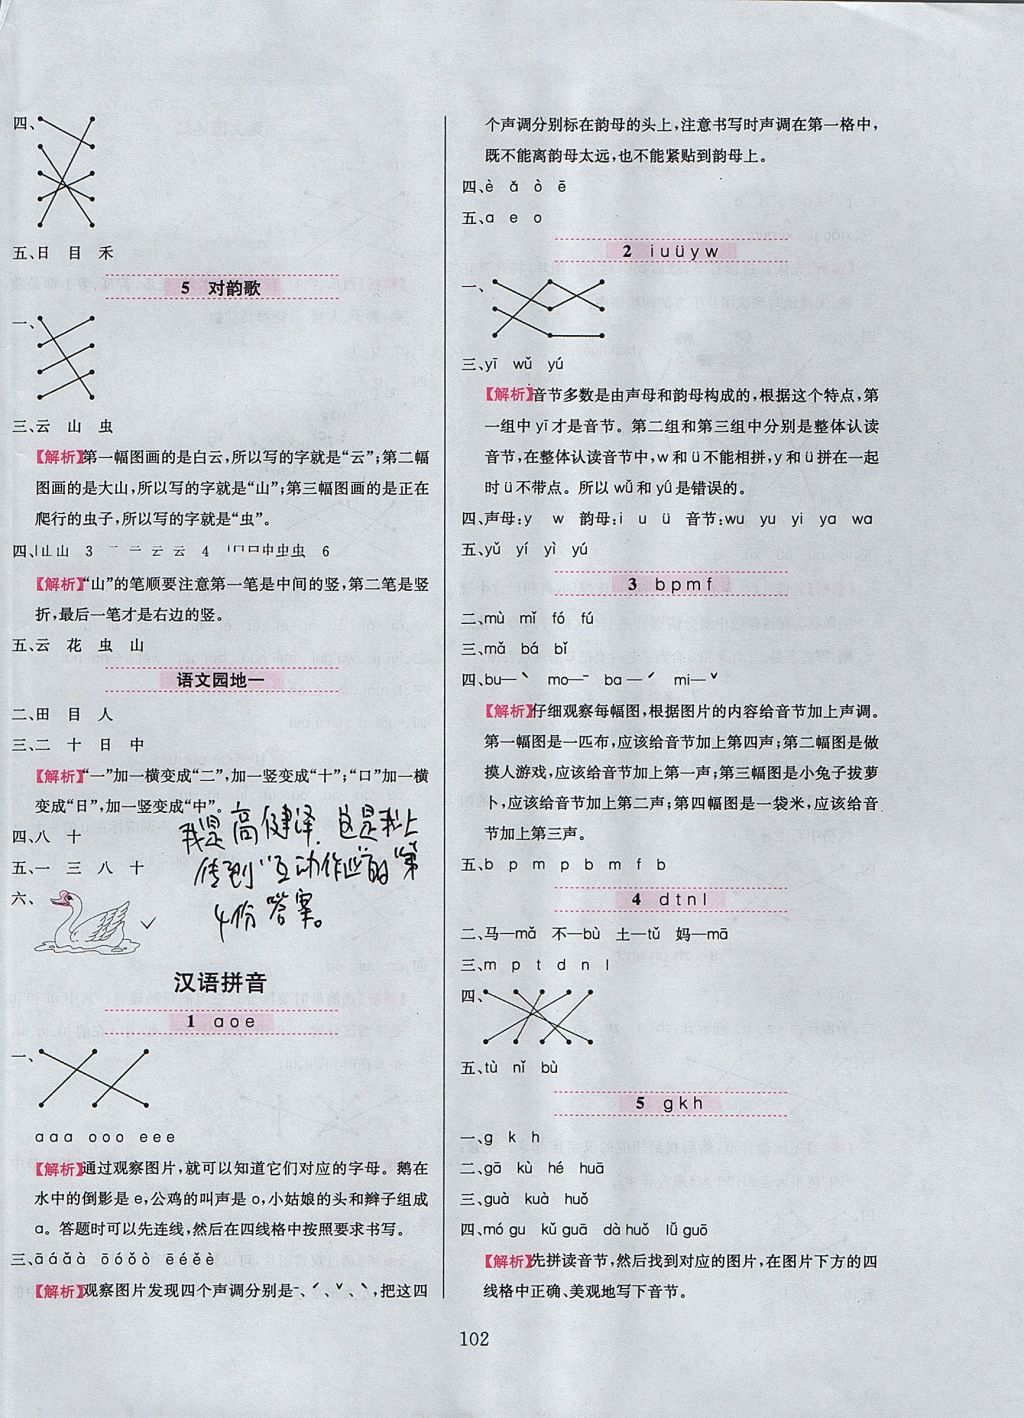 四、
五、日 目 禾
5 对韵歌
一、
三、云 山 虫
【解析】第一幅图画的是白云,所以写的字就是“云”;第二幅
图画的是大山,所以写的字就是“山”;第三幅图画的是正在
爬行的虫子,所以写的字就是“虫”。
四、丨山山 3 二 云 云 4 口中虫虫 6
【解析】“山”的笔顺要注意第一笔是中间的竖,第二笔是竖
折,最后一笔才是右边的竖。
五、云 花 虫 山
语文园地一
二、田 目 人
三、二 十 日 中
【解析】“一”加一横变成“二”,加一竖变成“十”;“口”加一横
变成“日”,加一竖变成“中”。
四、八 十
五、一 三 八 十
六、
我是高健泽,这是我上
传到“互动作业”的第
4份答案。
汉语拼音
1 ɑoe
一、
ɑɑɑ ooo eee
【解析】通过观察图片,就可以知道它们对应的字母。鹅在
水中的倒影是e,公鸡的叫声是o,小姑娘的头和辫子组成
ɑ。答题时可以先连线,然后在四线格中按照要求书写。
三、āáǎà ōóǒò ēéěè
【解析】观察图片发现四个声调分别是ˉ、ˊ、ˇ、ˋ,把这四
个声调分别标在韵母的头上,注意书写时声调在第一格中,
既不能离韵母太远,也不能紧贴到韵母上。
四、è ǎ ò ē
五、ɑ e o
2 iuüyw
一、
三、yī wǔ yú
【解析】音节多数是由声母和韵母构成的,根据这个特点,第
一组中yī才是音节。第二组和第三组中分别是整体认读
音节,在整体认读音节中,w和ü不能相拼,y和ü拼在一起
时ü不带点。所以wǚ和yǘ是错误的。
四、声母:y w 韵母:i u ü 音节:wu yu yi yɑ wɑ
五、yǔ yí yì yú
3 bpmf
二、mù mǐ fó fú
三、mǎ bá bǐ
四、bu—ˋ mo—ˉ bɑ—ˊ mi—ˇ
【解析】仔细观察每幅图,根据图片的内容给音节加上声调。
第一幅图是一匹布,应该给音节加上第四声;第二幅图是做
摸人游戏,应该给音节加上第一声;第三幅图是小兔子拔萝
卜,应该给音节加上第二声;第四幅图是一袋米,应该给音
节加上第三声。
五、b p m p b m f b
4 dtnl
二、马—mǎ 不—bù 土—tǔ 妈—mā
三、m p t d n l
四、
五、tù nǐ bù
5 gkh
一、g k h
二、gā kù hé huā
三、guà kuà huǒ
四、mó gu kǔ guā dà huǒ lǜ guō
【解析】先拼读音节,然后找到对应的图片,在图片下方的四
线格中正确、美观地写下音节。
102